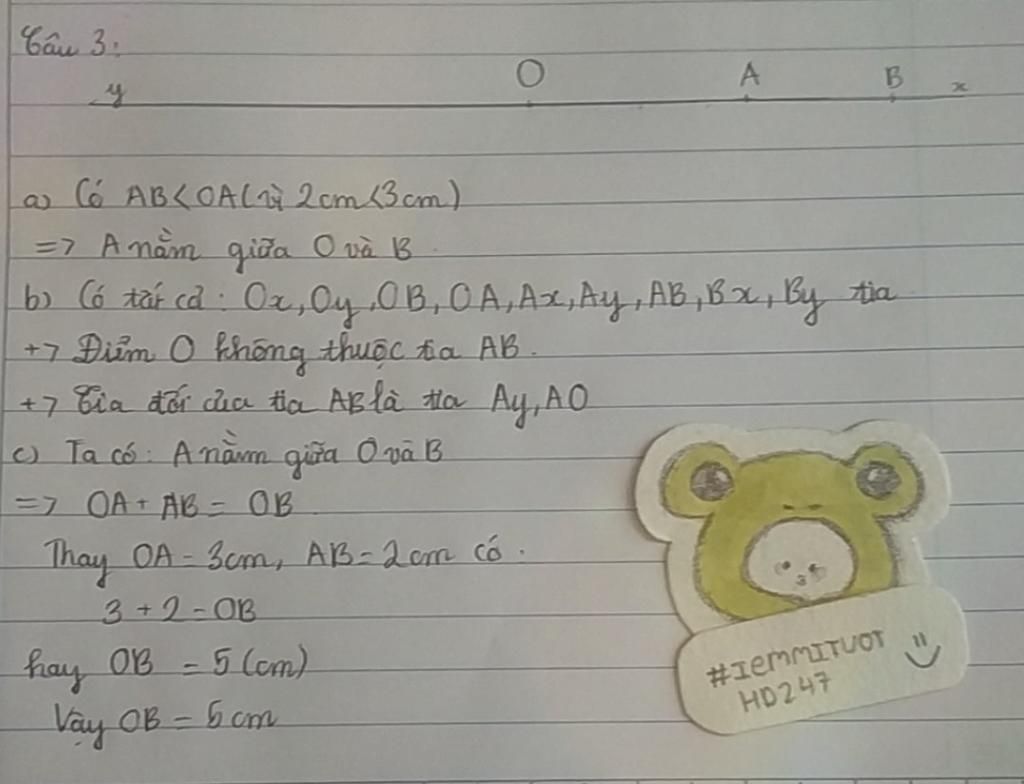 Câu 3:
y O A B x
a) Có AB < OA (vì 2cm < 3cm)
=> A nằm giữa O và B
b) Có tất cả: Ox, Oy, OB, OA, Ax, Ay, AB, Bx, By tia
+> Điểm O không thuộc tia AB.
+> Tia đối của tia AB là tia Ay, AO
c) Ta có: A nằm giữa O và B
=> OA + AB = OB
Thay OA = 3cm, AB = 2cm có:
3 + 2 = OB
hay OB = 5 (cm)
Vậy OB = 5cm
#IEMMITUOT
HD247